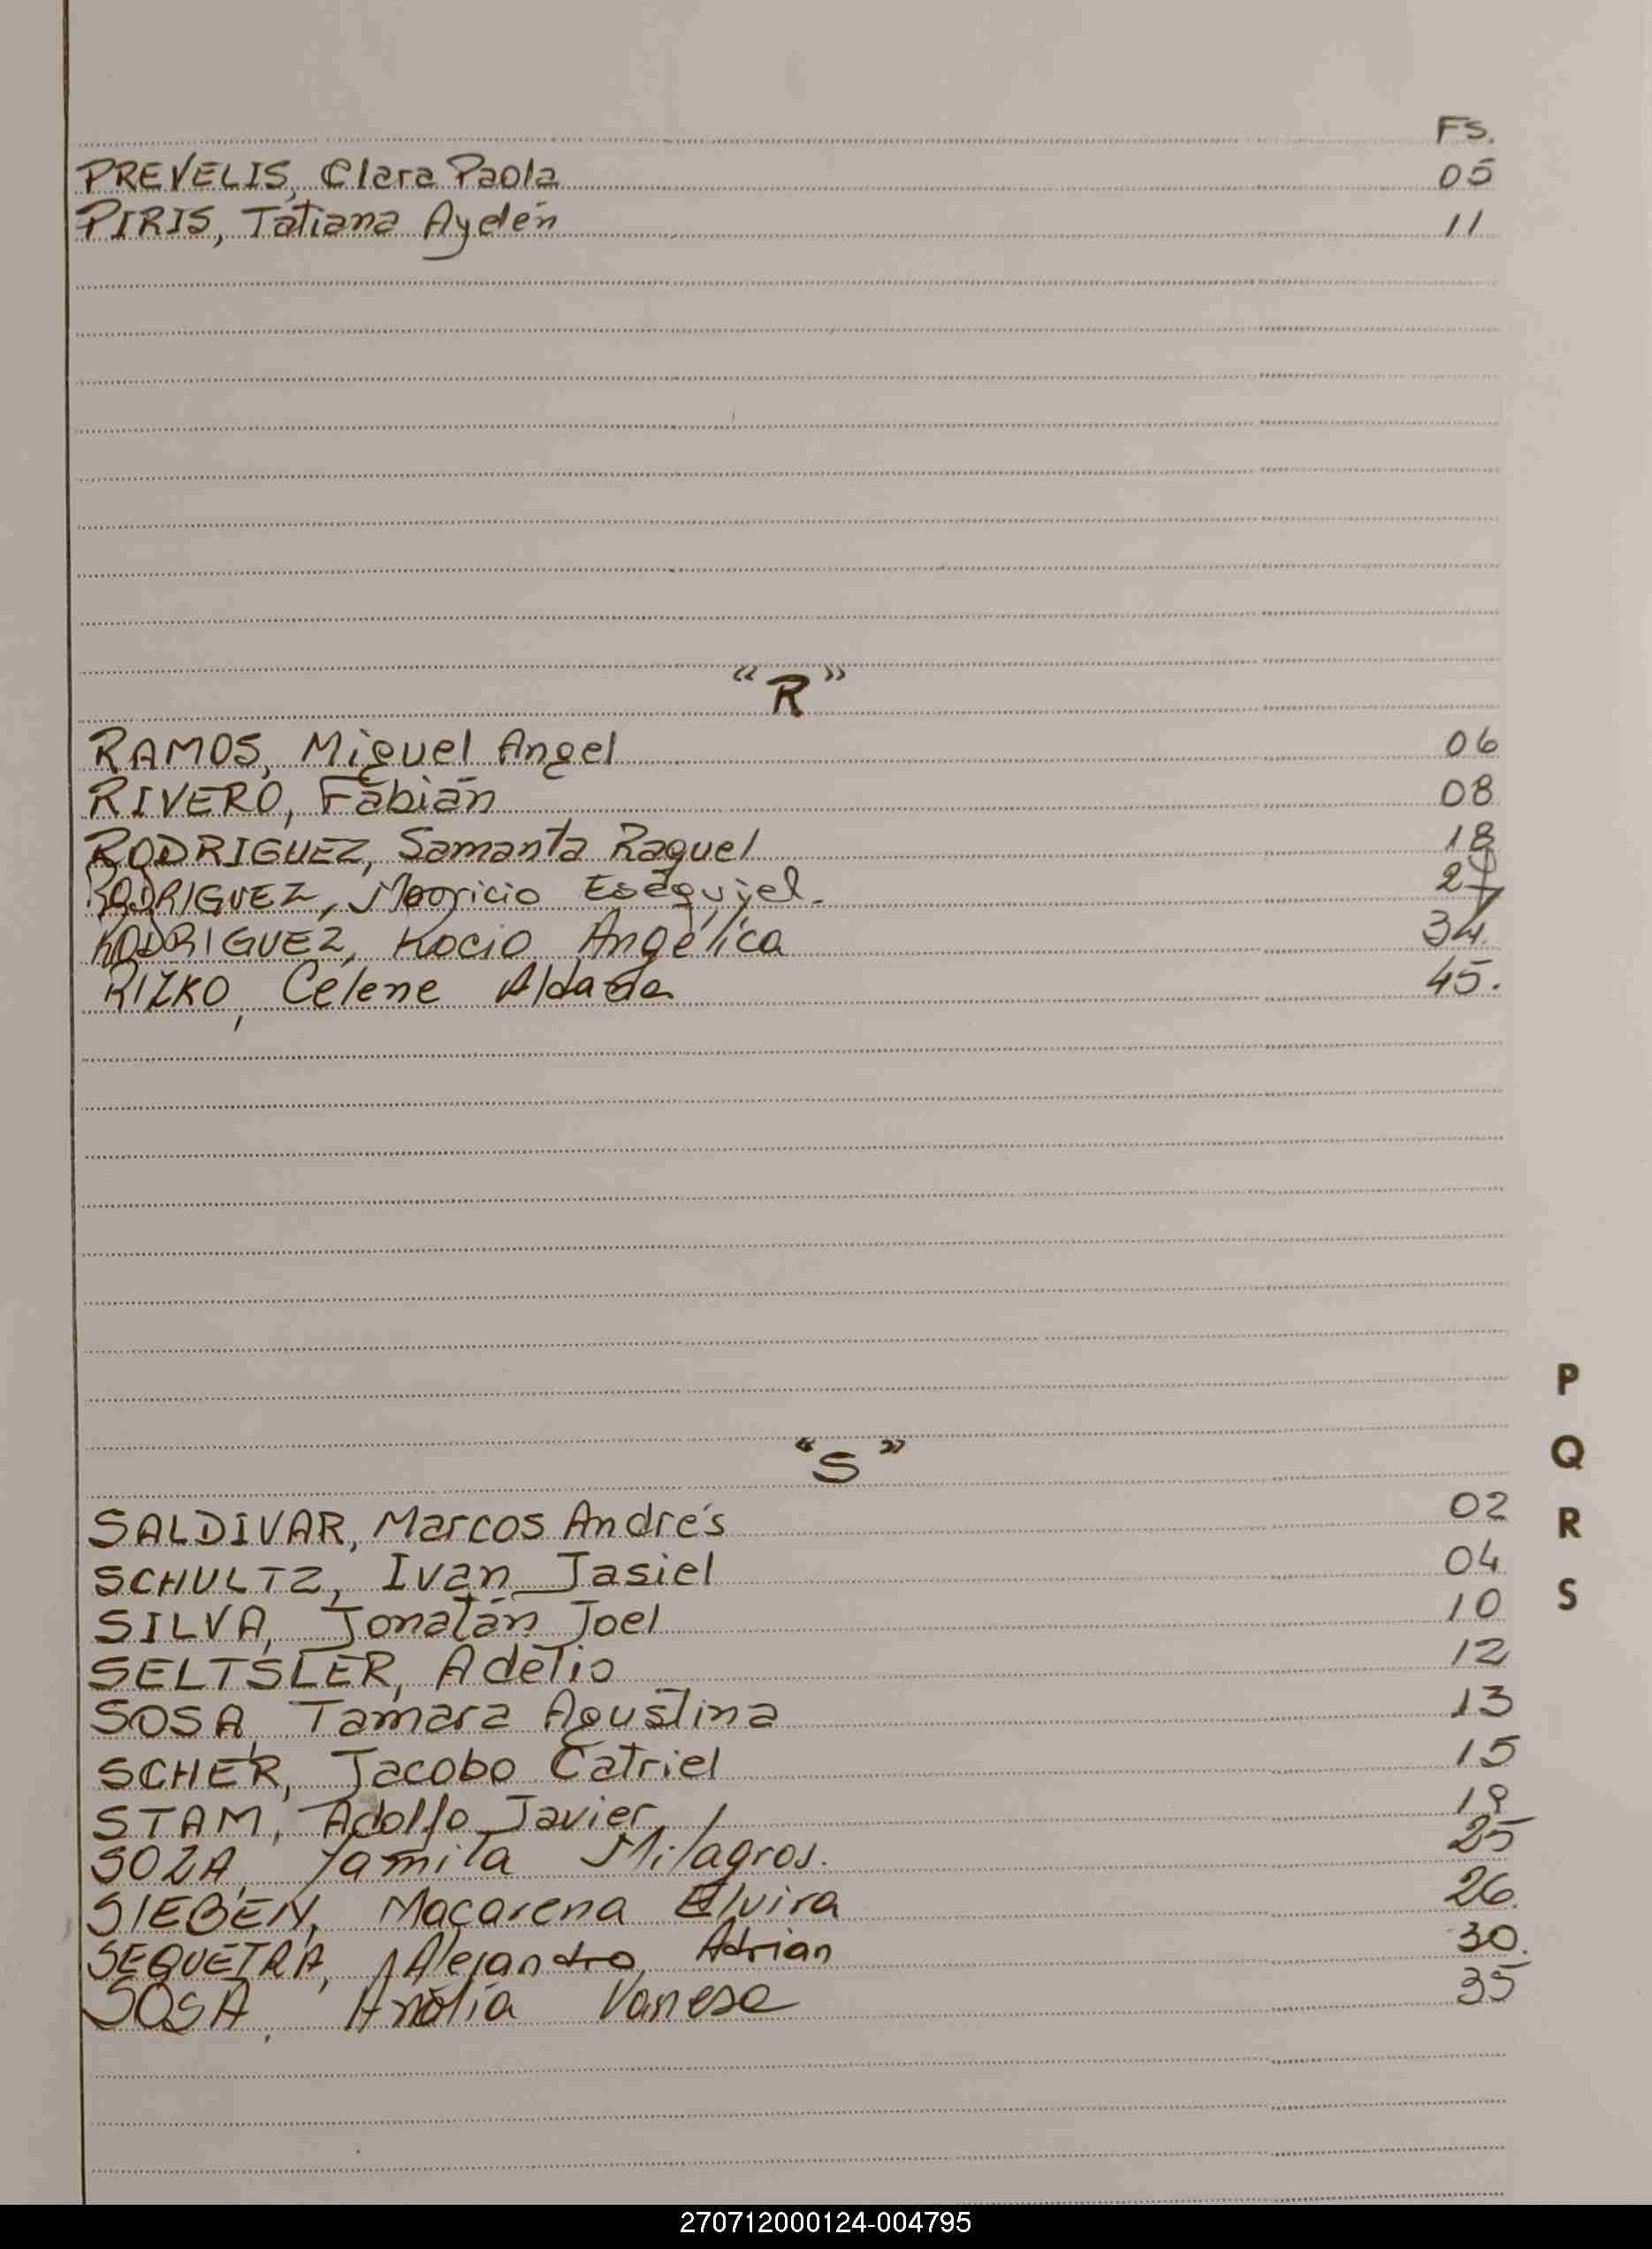 Fs.
PREVELIS, Clara Paola 05
PIRIS, Tatiana Aydén 11
"R"
RAMOS, Miguel Angel 06
RIVERO, Fabián 08
RODRIGUEZ, Samanta Raquel 18
RODRIGUEZ, Mauricio Esequiel. 27
RODRIGUEZ, Rocio Angélica 34.
RIZKO, Celene Aldana 45.
"S"
SALDIVAR, Marcos Andrés 02
SCHULTZ, Ivan Jasiel 04
SILVA, Jonatán Joel 10
SELTSLER, Adelio 12
SOSA, Tamara Agustina 13
SCHER, Jacobo Catriel 15
STAM, Adolfo Javier 19
SOZA, Yamila Milagros. 25
SIEBEN, Macarena Elvira 26.
SEQUEIRA, Alejandro Adrian 30.
SOSA, Analía Vanesa 35
P
Q
R
S
270712000124-004795